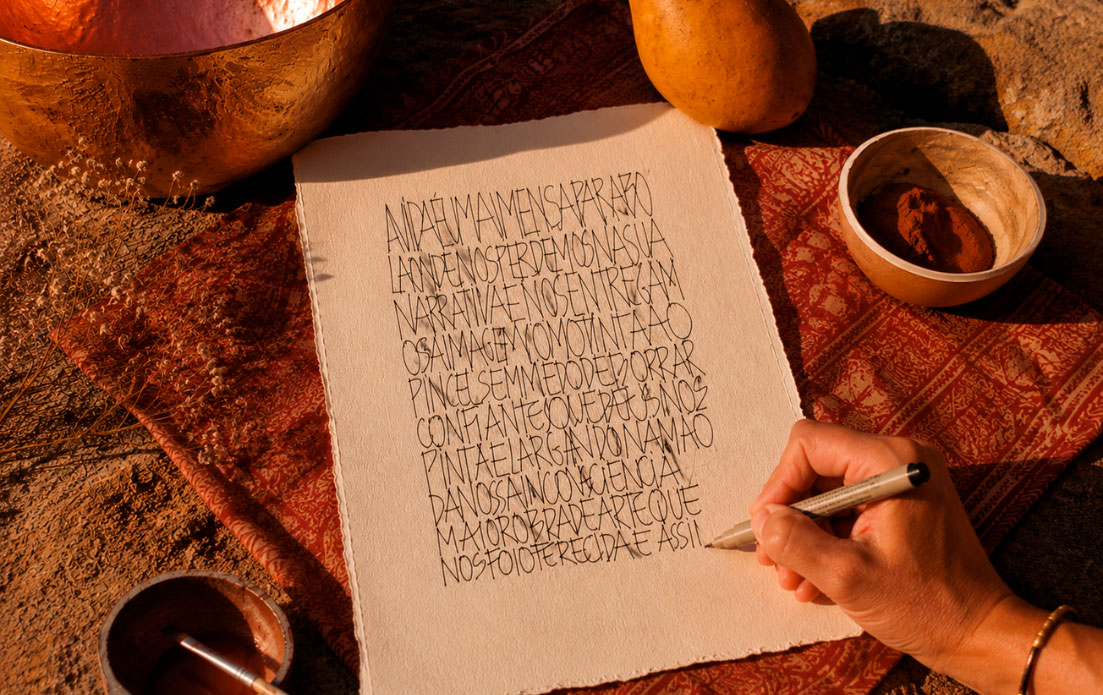 A VIDA É UMA IMENSA PARÁBO
LA ONDE NOS PERDEMOS NA SUA
NARRATIVA E NOS ENTREGAM
OS A IMAGEM COMO TINTA AO
PINCEL SEM MEDO DE BORRAR
CONFIANTE QUE DEUS NOS
PINTA E LARGANDO NA MÃO
DA NOSSA INCONCIENCIA
MAIOR OBRA DE ARTE QUE
NOS FOI OFERECIDA E ASSI